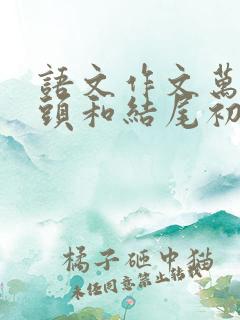 語文作文萬
頭和結尾初
橘子砸中貓
未經同意禁止轉載